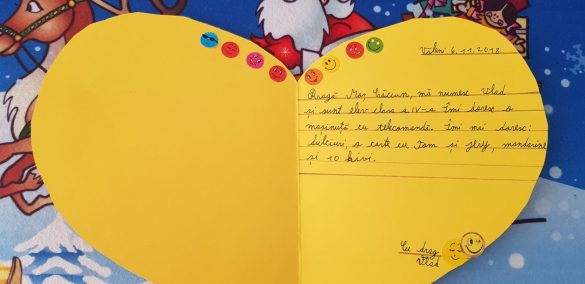 Văleni 6.11.2018
Dragă Moș Crăciun, mă numesc Vlad
și sunt elev clasa a IV-a. Îmi doresc o
mașinuță cu telecomandă. Îmi mai doresc:
dulciuri, o carte cu Tom și Jerry, mandarine
și 10 kiwi.
Cu drag
Vlad